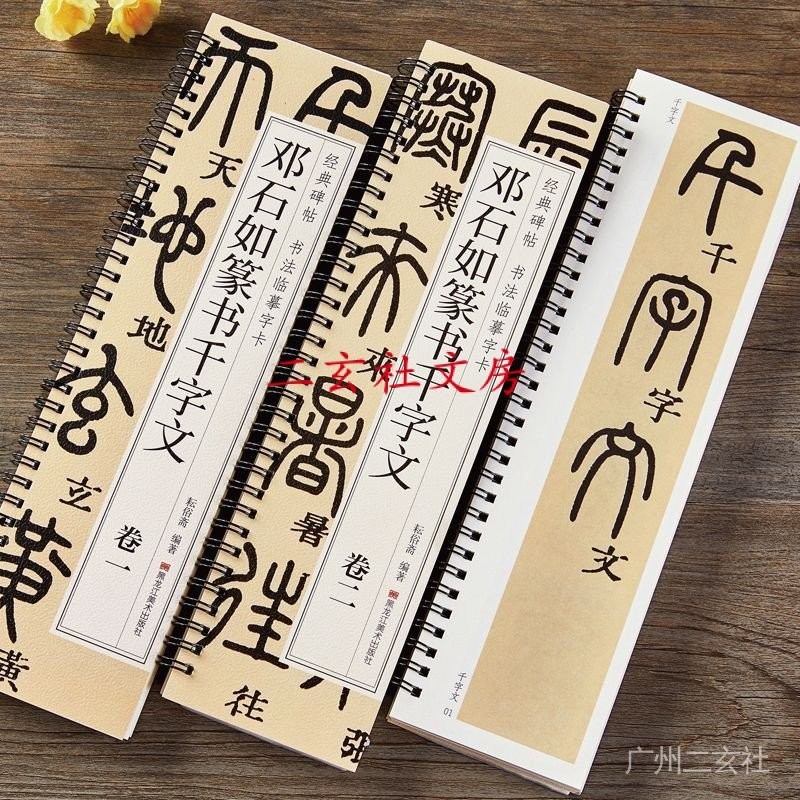 天
地
玄
黄
千
天
地
玄
黃
经典碑帖 书法临摹字卡
邓石如篆书千字文
卷一
耘俗斋 编著
黑龙江美术出版社
寒
来
暑
往
辰
张
寒
來
暑
往
張
经典碑帖 书法临摹字卡
邓石如篆书千字文
卷二
耘俗斋 编著
黑龙江美术出版社
千字文
千字文
千
字
文
千字文
01
二玄社文房
广州二玄社